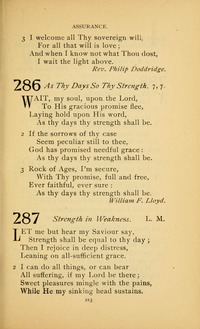 ASSURANCE.
3 I welcome all Thy sovereign will,
For all that will is love;
And when I know not what Thou dost,
I wait the light above.
Rev. Philip Doddridge.
286 As Thy Days So Thy Strength. 7, 7.
WAIT, my soul, upon the Lord,
To His gracious promise flee,
Laying hold upon His word,
As thy days thy strength shall be.
2 If the sorrows of thy case
Seem peculiar still to thee,
God has promised needful grace:
As thy days thy strength shall be.
3 Rock of Ages, I'm secure,
With Thy promise, full and free,
Ever faithful, ever sure:
As thy days thy strength shall be.
William F. Lloyd.
287 Strength in Weakness. L. M.
LET me but hear my Saviour say,
Strength shall be equal to thy day;
Then I rejoice in deep distress,
Leaning on all-sufficient grace.
2 I can do all things, or can bear
All suffering, if my Lord be there;
Sweet pleasures mingle with the pains,
While He my sinking head sustains.